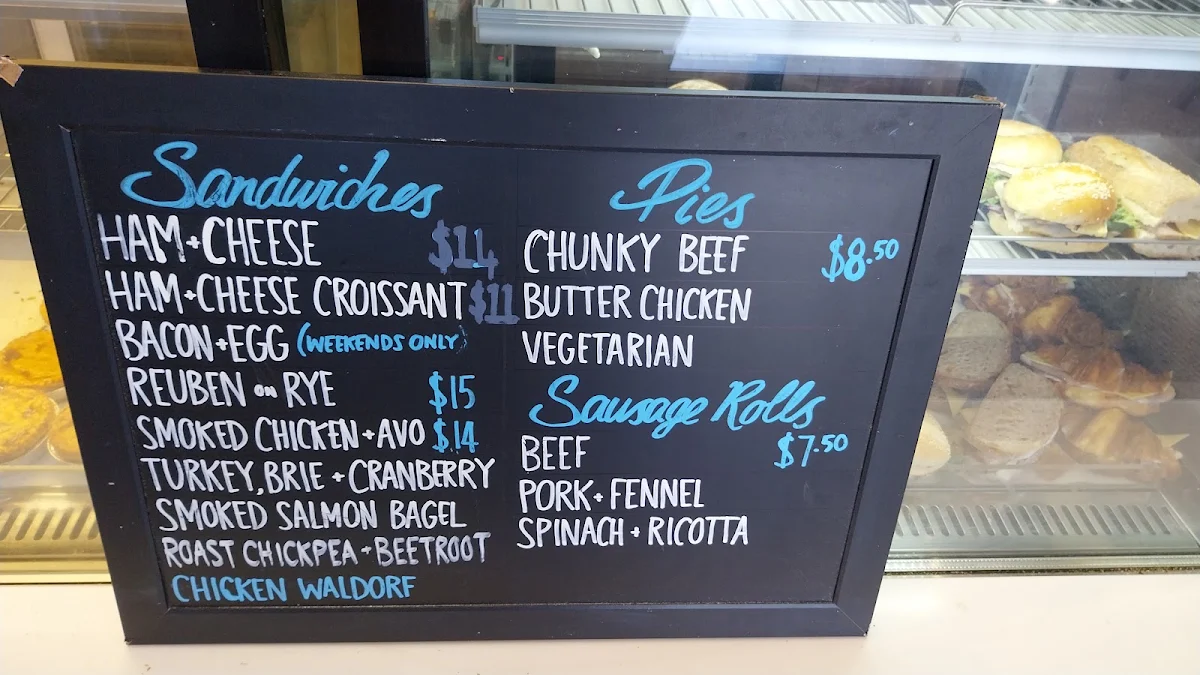 Sandwiches
HAM+CHEESE $14
HAM+CHEESE CROISSANT $11
BACON+EGG (WEEKENDS ONLY)
REUBEN on RYE $15
SMOKED CHICKEN+AVO $14
TURKEY, BRIE + CRANBERRY
SMOKED SALMON BAGEL
ROAST CHICKPEA + BEETROOT
CHICKEN WALDORF
Pies
CHUNKY BEEF $8.50
BUTTER CHICKEN
VEGETARIAN
Sausage Rolls
BEEF $7.50
PORK + FENNEL
SPINACH + RICOTTA